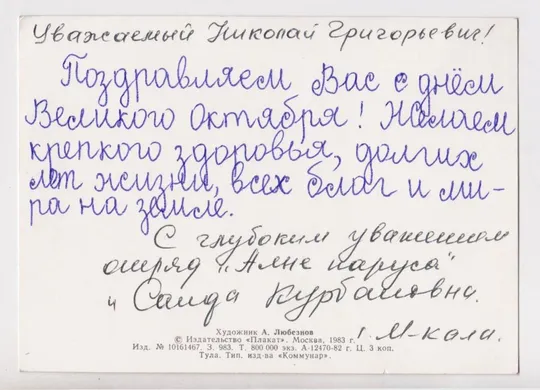 Уважаемый Николай Григорьевич!
Поздравляем Вас с днём
Великого Октября! Желаем
крепкого здоровья, долгих
лет жизни, всех благ и ми-
ра на земле.
С глубоким уважением
отряд "Алые паруса"
и Саида Курбановна.
г. М-кала.
Художник А. Любезнов
© Издательство «Плакат». Москва, 1983 г.
Изд. № 10161467. З. 983. Т. 800 000 экз. А-12470-82 г. Ц. 3 коп.
Тула. Тип. изд-ва «Коммунар».